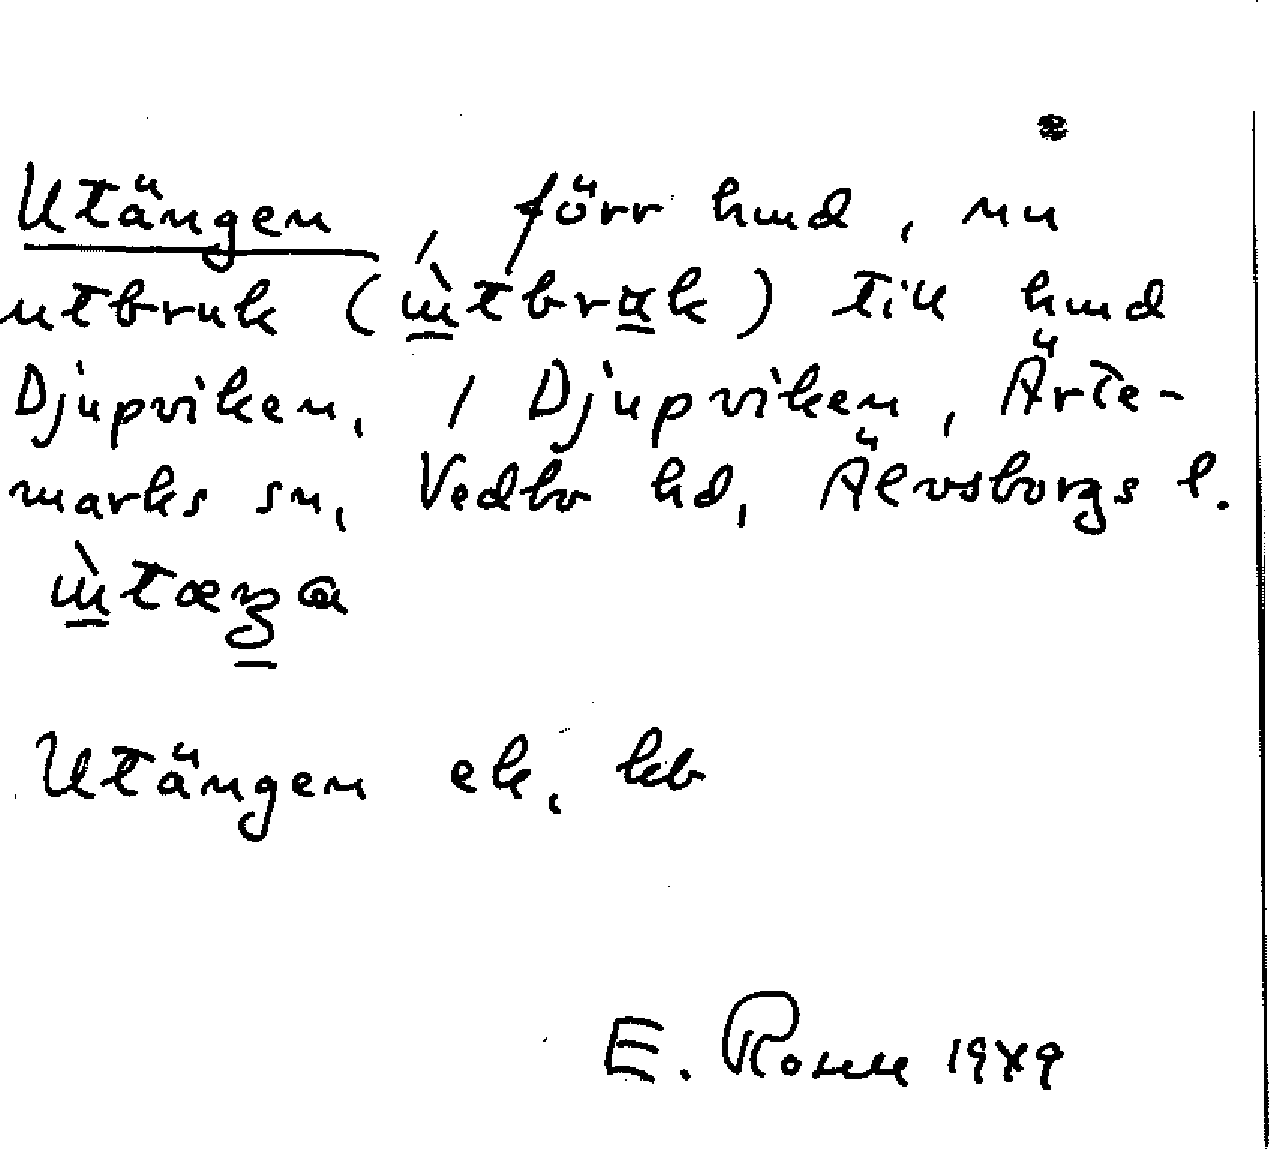 Utängen, förr hmd, nu
utbruk (ùtbruk) till hmd
Djupviken, / Djupviken, Ärte-
marks sn, Vedbo hd, Älvsborgs l.
ùtæŋa
Utängen ek, kb
E. 1949